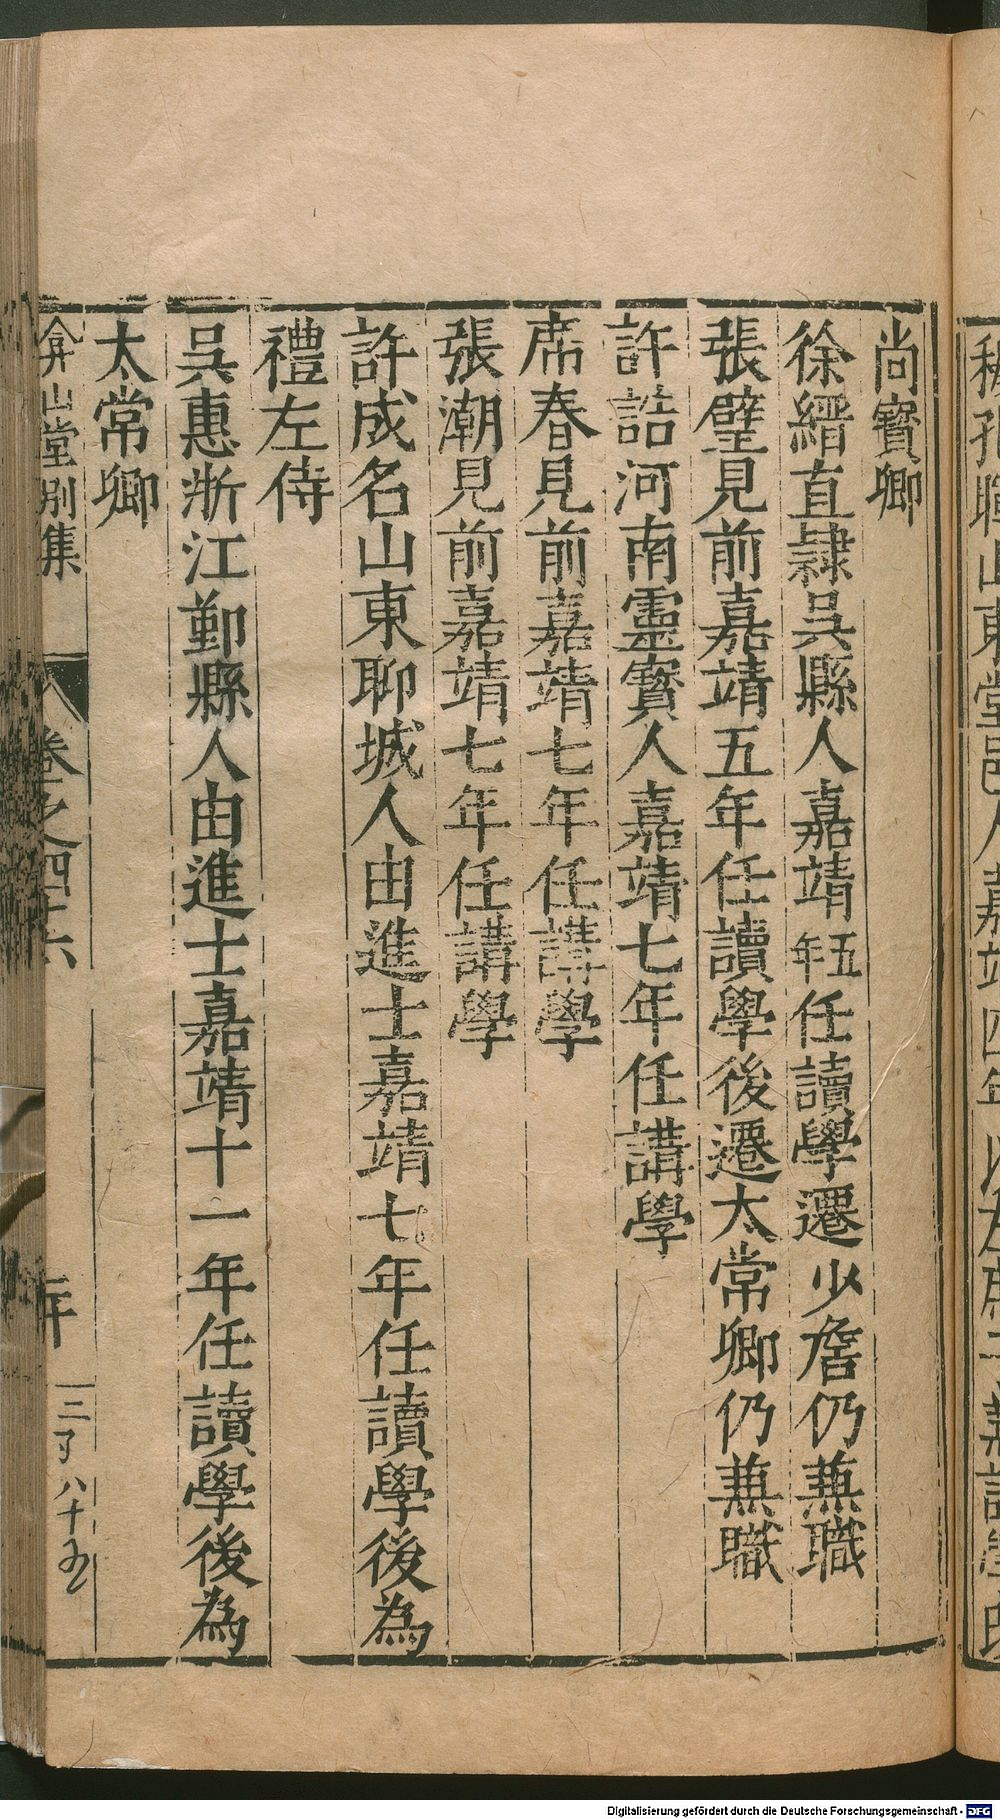 尚寶卿
徐縉直隸吳縣人嘉靖五年任讀學遷少詹仍兼職
張璧見前嘉靖五年任讀學後遷太常卿仍兼職
許誥河南靈寳人嘉靖七年任講學
席春見前嘉靖七年任講學
張潮見前嘉靖七年任講學
許成名山東聊城人由進士嘉靖七年任讀學後為
禮左侍
吳惠浙江鄞縣人由進士嘉靖十一年任讀學後為
太常卿
弇山堂別集
卷之四十六
三了八十五
Digitalisierung gefördert durch die Deutsche Forschungsgemeinschaft - DFG